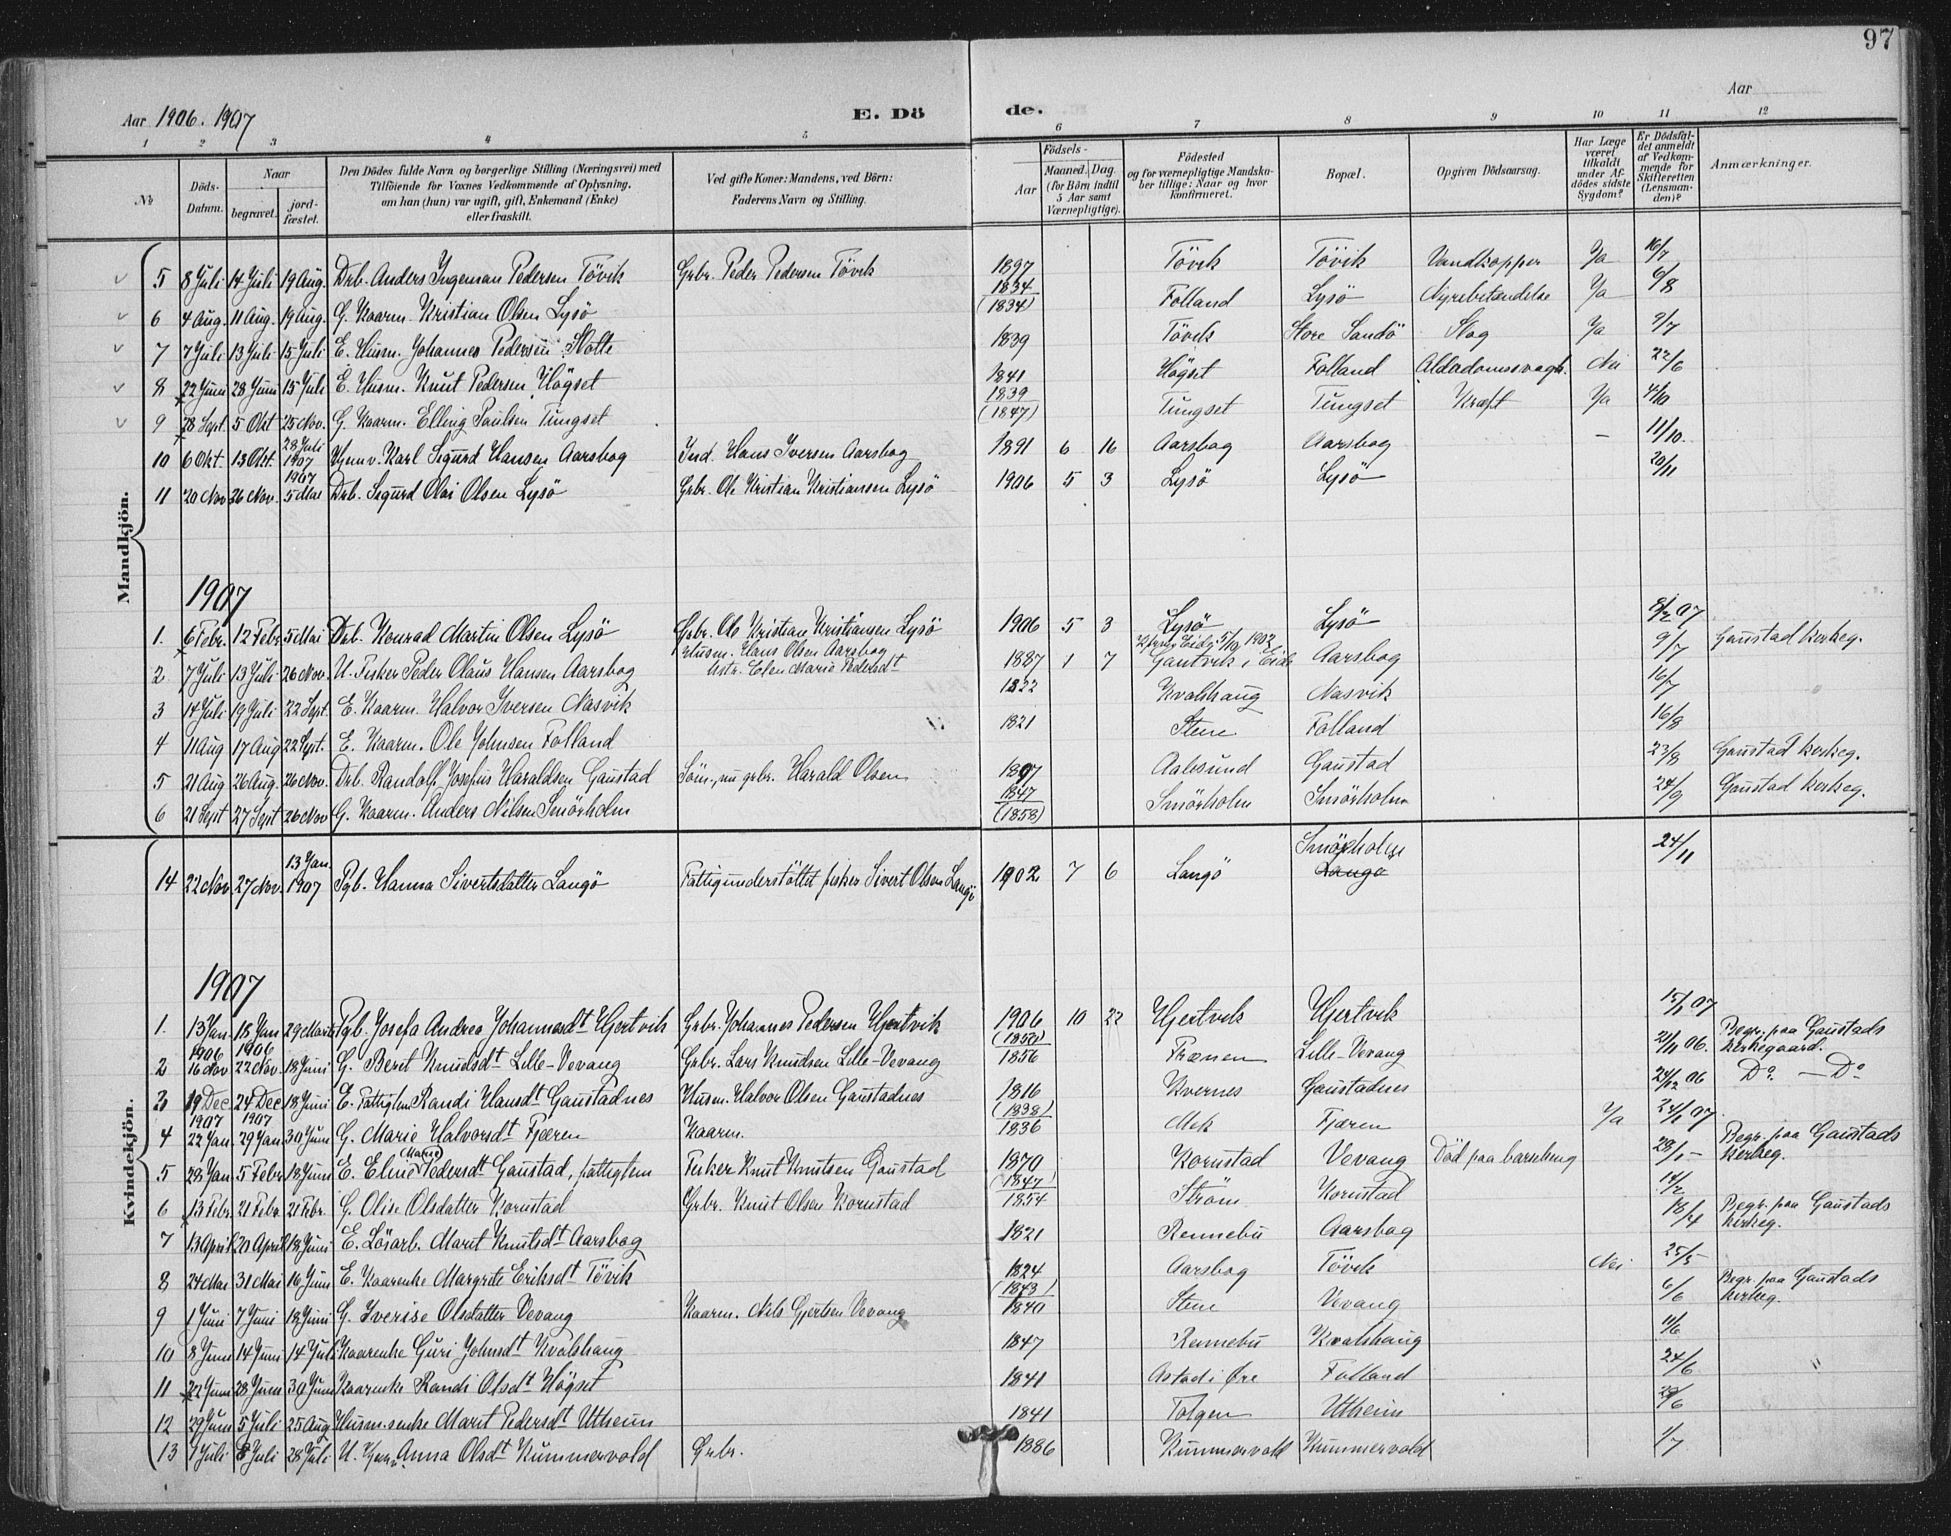 97
Aar 1906. 1907 E. Döde. Aar
1 2 3 4 5 6 7 8 9 10 11 12
№ Döds-Datum. Naar begravet. jordfæstet. Den Dödes fulde Navn og borgerlige Stilling (Næringsvei) med Tilföiende for Voxnes Vedkommende af Oplysning, om han (hun) var ugift, gift, Enkemand (Enke) eller fraskilt. Ved gifte Koner: Mandens, ved Börn: Faderens Navn og Stilling. Födsels- Aar Maaned. Dag. (for Börn indtil 5 Aar samt Værnepligtige). Födested og for værnepligtige Mandskaber tillige: Naar og hvor konfirmeret. Bopæl. Opgiven Dödsaarsag. Har Læge været tilkaldt under Afdödes sidste Sygdom? Er Dödsfaldet anmeldt af Vedkommende for Skifteretten (Lensmanden)? Anmærkninger.
Mandkjön.
5 8 Juli 14 Juli 19 Aug. Drb. Anders Ingeman Pedersen Tövik Grbr. Peder Pedersen Tövik 1897 Tövik Tövik Vandkopper Ja 16/7
6 4 Aug. 11 Aug. 19 Aug. G. Kaarm. Kristian Olsen Lysö 1834 (1834) Folland Lysö Nyrebetændelse Ja 6/8
7 7 Juli 13 Juli 15 Juli E. Husm. Johannes Pedersen Stolte 1839 Tövik Store Sandö Slag Ja 7/7
8 22 Juni 28 Juni 15 Juli E. Husm. Knut Pedersen Högset 1841 Högset Folland Alderdomssvagh. Nei 22/6
9 28 Sept. 5 Okt 25 Nov. G. Kaarm. Elling Paulsen Tungset 1839 (1847) Tungset Tungset Kræft Ja 4/10
10 6 Okt. 13 Okt. 28 Juli 1907 Hjemv. Karl Sigurd Hansen Aarsbog Ind. Hans Iversen Aarsbog 1891 6 16 Aarsbog Aarsbog – 11/10.
11 20 Nov 26 Nov. 1907 5 Mai Drb. Sigurd Olai Olsen Lysö Grbr. Ole Kristian Kristiansen Lysö 1906 5 3 Lysö Lysö 20/11
1907
1. 6 Febr. 12 Febr 5 Mai Drb. Konrad Martin Olsen Lysö Grbr. Ole Kristian Kristiansen Lysö 1906 5 3 Lysö Lysö 8/2 07
2 7 Juli 13 Juli 26 Nov. U. Fisker Peder Olaus Hansen Aarsbog Husm. Hans Olsen Aarsbog Ustr. Elen Marie Pedersdt 1887 1 7 Gautvik i Eide Aarsbog 9/7 Gaustad kirkeg.
3 14 Juli 19 Juli 22 Sept. E. Kaarm. Halvor Iversen Nasvik 1822 Kvalshaug Nasvik 16/7
4 11 Aug 17 Aug 22 Sept. E. Kaarm. Ole Johnsen Folland 1821 Stene Folland 16/8
5 21 Aug 26 Aug. 26 Nov. Drb. Randolf Josefus Haraldsen Gaustad Söm., nu grbr. Harald Olsen 1897 Aalesund Gaustad 23/8 Gaustad kirkeg.
6 21 Sept 27 Sept 26 Nov G. Kaarm. Anders Nilsen Smörholm 1847 (1858) Smörholm Smörholm 24/9 Gaustad kirkeg.
Kvindekjön.
14 22 Nov 27 Nov. 13 Jan. 1907 Pgb. Hanna Sivertsdatter Langö Fattigunderstöttet fisker Sivert Olsen Langö 1902 7 6 Langö Smörholm Langö 24/11
1907
1. 13 Jan. 18 Jan 29 Marts Pgb. Josefa Andrea Johannesdt Hjertvik Grbr. Johannes Pedersen Hjertvik 1906 10 22 Hjertvik Hjertvik 15/1 07
2 1906 16 Nov 1906 22 Nov. 18 Juni G. Beret Knudsdt Lille-Vevang Grbr. Lars Knudsen Lille-Vevang (1850) 1856 Frænen Lille-Vevang 21/11 06. Begr. paa Gaustads kirkegaard.
3 19 Dec. 24 Dec. 18 Juni E. Fattiglem Randi Hansdt Gaustadnes Husm. Halvor Olsen Gaustadnes 1816 Kvernes Gaustadnes 24/12 06 Do. — Do
4 1907 22 Jan. 1907 29 Jan. 30 Juni G. Marie Halvorsdt Fjæren Kaarm. (1838) 1836 Mek Fjæren Ja 24/1 07
5 28 Jan. 5 Febr. 18 Juni E. Eline (Marie) Pedersdt Gaustad, fattiglem Fisker Knut Knutsen Gaustad 1870 Kornstad Vevang Död paa barseleng 28/1 – Begr. paa Gaustads kirkeg.
6 13 Febr. 21 Febr. 21 Febr. G. Olise Olsdatter Kornstad Grbr. Knut Olsen Kornstad (1847) 1854 Ström Kornstad 14/2
7 13 April 20 April 18 Juni E. Lösarb. Marit Knutsdt Aarsbog 1821 Rennebu Aarsbog 18/4 Begr. paa Gaustads kirkeg.
8 24 Mai 31 Mai 16 Juni E. Kaarenke Margrete Eriksdt Tövik 1824 Aarsbog Tövik Nei 25/5
9 1 Juni 7 Juni 18 Juni G. Iverise Olsdatter Vevang Kaarm. Nils Gjertsen Vevang (1843) 1840 Stene Vevang 6/6 Begr. paa Gaustads kirkeg.
10 8 Juni 14 Juni 14 Juli Kaarenke Guri Johnsdt Kvalshaug 1847 Rennebu Kvalshaug 11/6
11 22 Juni 28 Juni 30 Juni Kaarenke Randi Olsdt Högset 1841 Astad i Öre Folland 24/6
12 29 Juni 5 Juli 25 Aug Husm.enke Marit Pedersdt Utheim 1841 Tolgen Utheim 29/6
13 1 Juli 8 Juli 28 Juli U. Hjem. Anna Olsdt Kummervold Grbr. 1886 Kummervold Kummervold 1/7